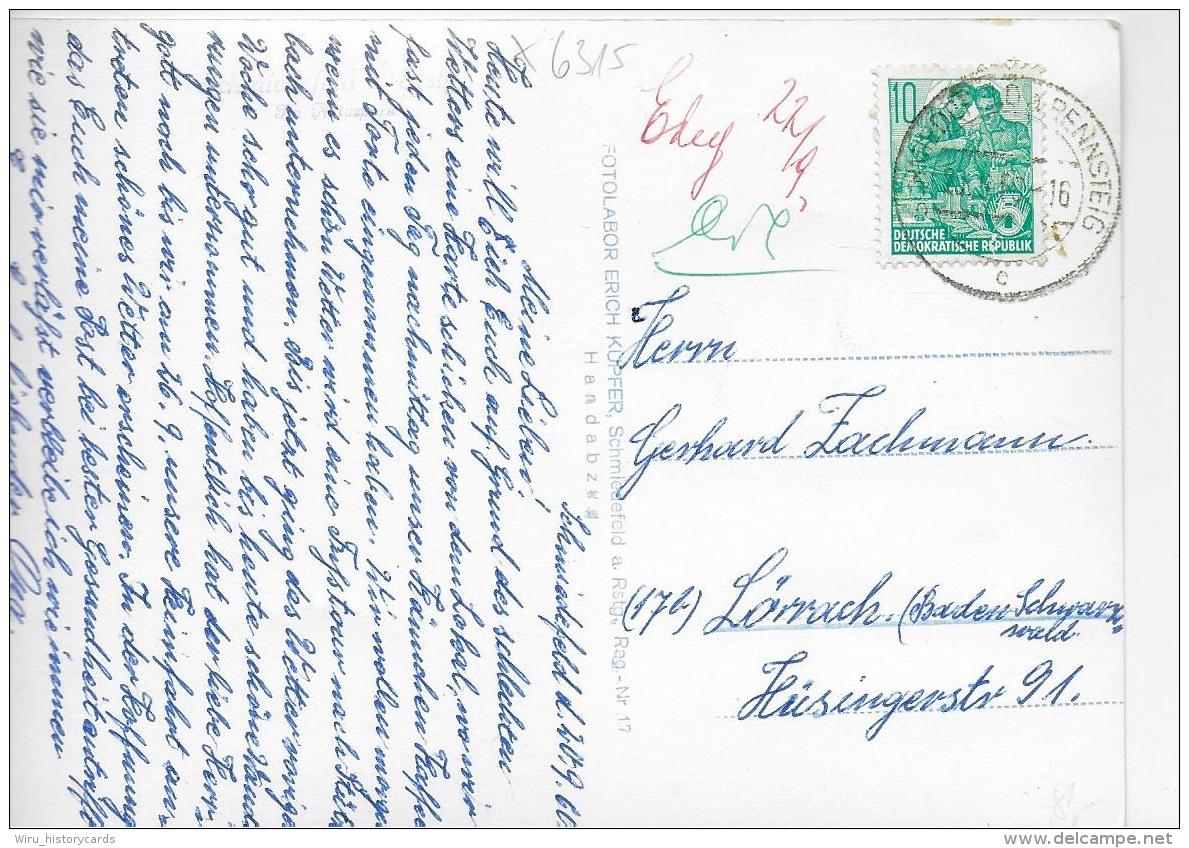 Schmiedefeld d. 20.9.60
Meine Lieben!
Heute will ich Euch auf Grund des schlechten
Wetters eine Karte schicken von dem Lokal, wo wir
fast jeden Tag nachmittag unser Kännchen Kaffee
mit Torte eingenommen haben. Wir wollen morgen
wenn es schön Wetter wird eine Tour nach
bach unternehmen. Bis jetzt ging das Wetter vorige
Woche schon gut und haben bis heute schöne Wande
rungen unternommen. Hoffentlich hat der liebe Herr
gott noch bis wir am 26.9. unsere Heimfahrt an
treten schönes Wetter erscheinen. In der Hoffnung
das Euch meine Post bei bester Gesundheit antrifft
wie sie mir verläßt verbleibe ich wie immer
x 6315
22/9
10
DEUTSCHE
DEMOKRATISCHE REPUBLIK
5
RENNSTEIG
16
c
FOTOLABOR ERICH KUPFER, Schmiedefeld a. Rstg., Reg.-Nr 17
Handabzug
Herrn
Gerhard Zachmann.
(17b) Lörrach. (Baden Schwarz
wald
Hüsingerstr 91.
Wiru_historycards
delcampe.net